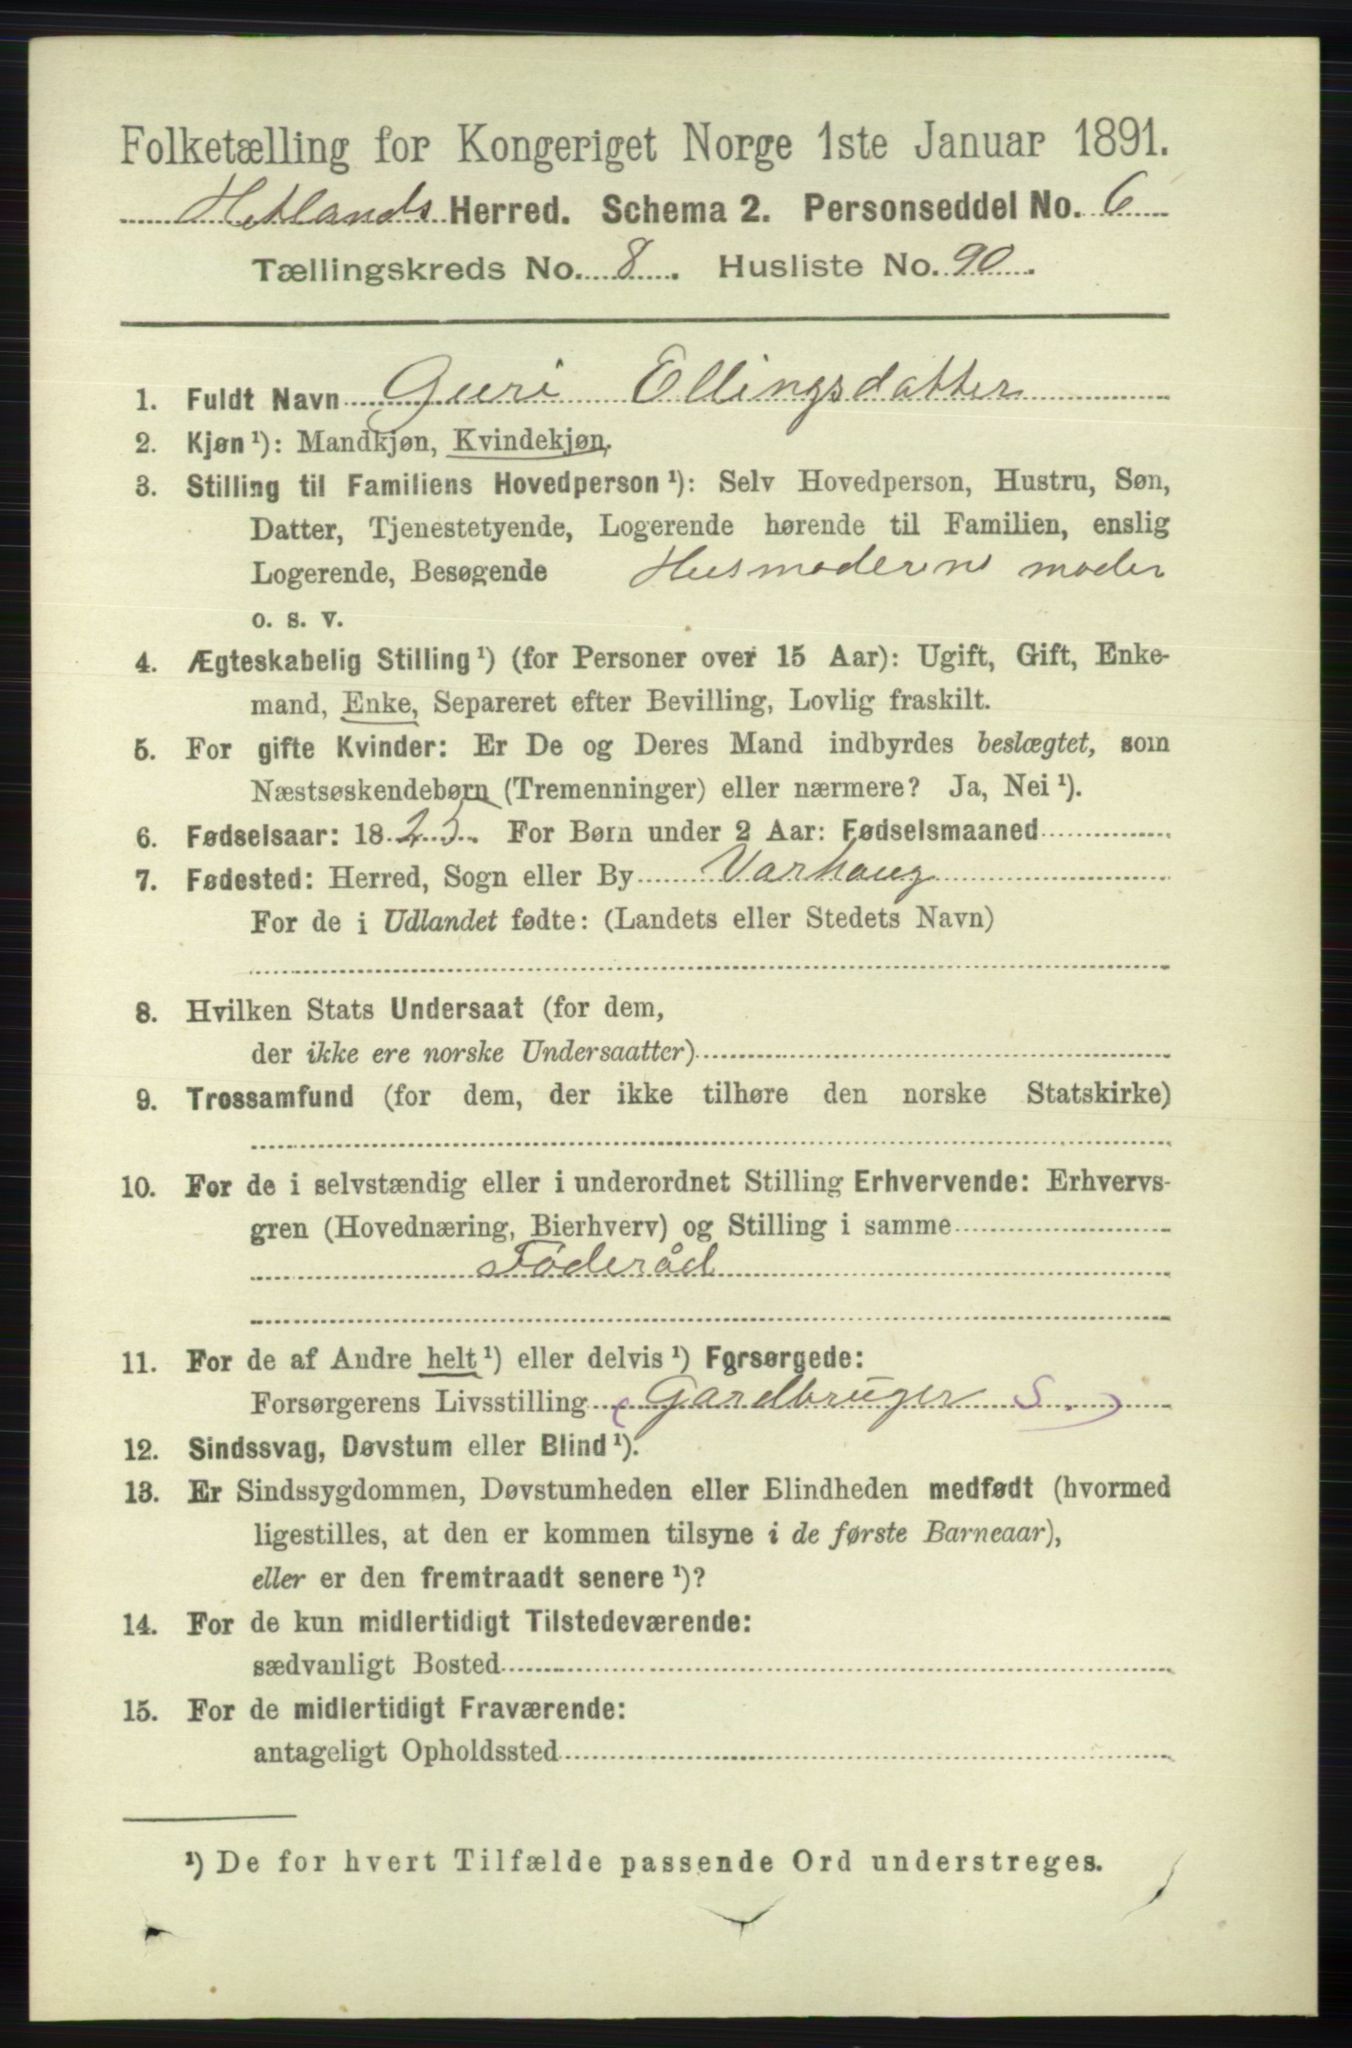 Folketælling for Kongeriget Norge 1ste Januar 1891.
Hetlands Herred. Schema 2. Personseddel No. 6
Tællingskreds No. 8. Husliste No. 90.
1. Fuldt Navn Guri Ellingsdatter
2. Kjøn ¹): Mandkjøn, Kvindekjøn.
3. Stilling til Familiens Hovedperson ¹): Selv Hovedperson, Hustru, Søn,
Datter, Tjenestetyende, Logerende hørende til Familien, enslig
Logerende, Besøgende Husmoderens moder
o. s. v.
4. Ægteskabelig Stilling ¹) (for Personer over 15 Aar): Ugift, Gift, Enke-
mand, Enke, Separeret efter Bevilling, Lovlig fraskilt.
5. For gifte Kvinder: Er De og Deres Mand indbyrdes beslægtet, som
Næstsøskendebørn (Tremenninger) eller nærmere? Ja, Nei ¹).
6. Fødselsaar: 1825. For Børn under 2 Aar: Fødselsmaaned
7. Fødested: Herred, Sogn eller By Varhaug
For de i Udlandet fødte: (Landets eller Stedets Navn)
8. Hvilken Stats Undersaat (for dem,
der ikke ere norske Undersaatter)
9. Trossamfund (for dem, der ikke tilhøre den norske Statskirke)
10. For de i selvstændig eller i underordnet Stilling Erhvervende: Erhvervs-
gren (Hovednæring, Bierhverv) og Stilling i samme
Føderåd
11. For de af Andre helt ¹) eller delvis ¹) Forsørgede:
Forsørgerens Livsstilling (Gardbruger S.)
12. Sindssvag, Døvstum eller Blind ¹).
13. Er Sindssygdommen, Døvstumheden eller Blindheden medfødt (hvormed
ligestilles, at den er kommen tilsyne i de første Barneaar),
eller er den fremtraadt senere ¹)?
14. For de kun midlertidigt Tilstedeværende:
sædvanligt Bosted
15. For de midlertidigt Fraværende:
antageligt Opholdssted
¹) De for hvert Tilfælde passende Ord understreges.